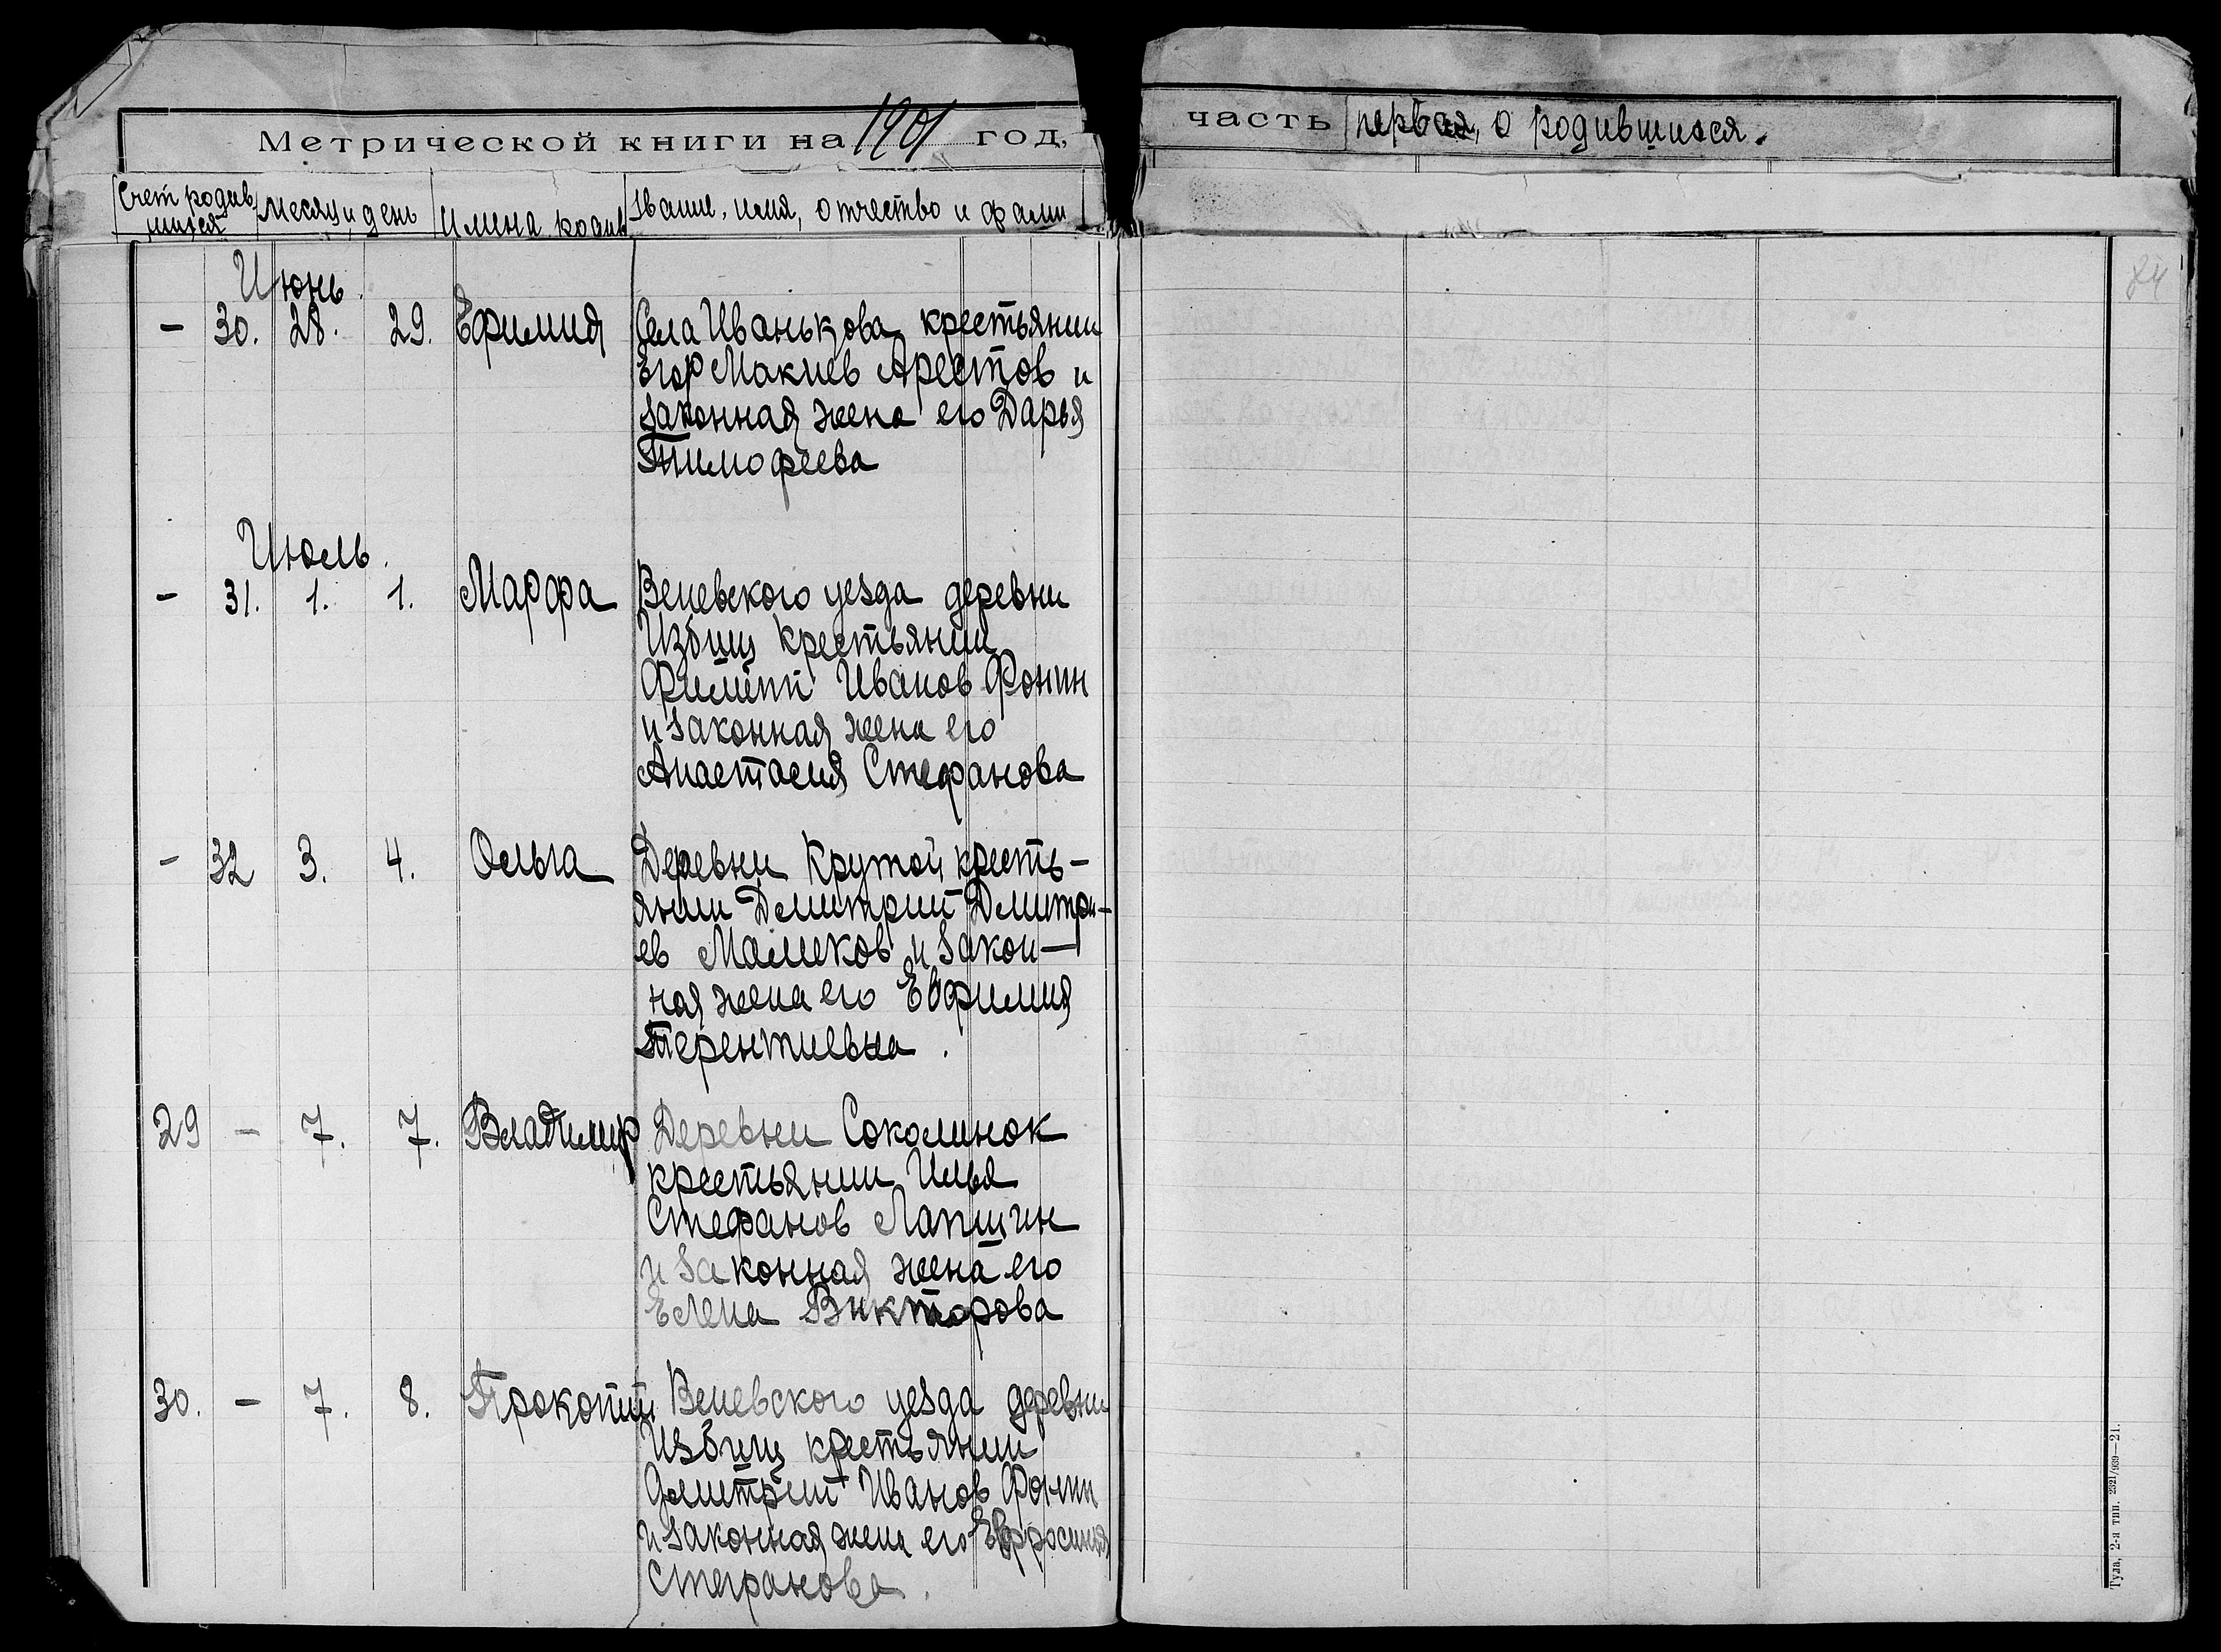 Метрической книги на 1901 год, часть первая, о родившихся.
Счет родив
шихся
месяц и день
имена родив
Звание, имя, отчество и фами
84
Июнь.
— 30. 28. 29. Ефимия Села Иванькова крестьянин
Егор Макиев Арестов и
законная жена его Дарья
Тимофеева
Июль.
— 31. 1. 1. Марфа Веневского уезда деревни
Избищ крестьянин
Филипп Иванов Фонин
и законная жена его
Анастасия Стефанова
— 32 3. 4. Ольга Деревни Крутой кресть-
янин Димитрий Димитри-
ев Малеков и закон-
ная жена его Евфимия
Терентиевна.
29 — 7. 7. Владимир Деревни Соколинок
крестьянин Илья
Стефанов Лапшин
и законная жена его
Елена Викторова
30. — 7. 8. Прокопий Веневского уезда деревни
Избищ крестьянин
Димитрий Иванов Фонин
и законная жена его Евфросиния
Стефанова.
Тула, 2-я тип. 2321/939—21.